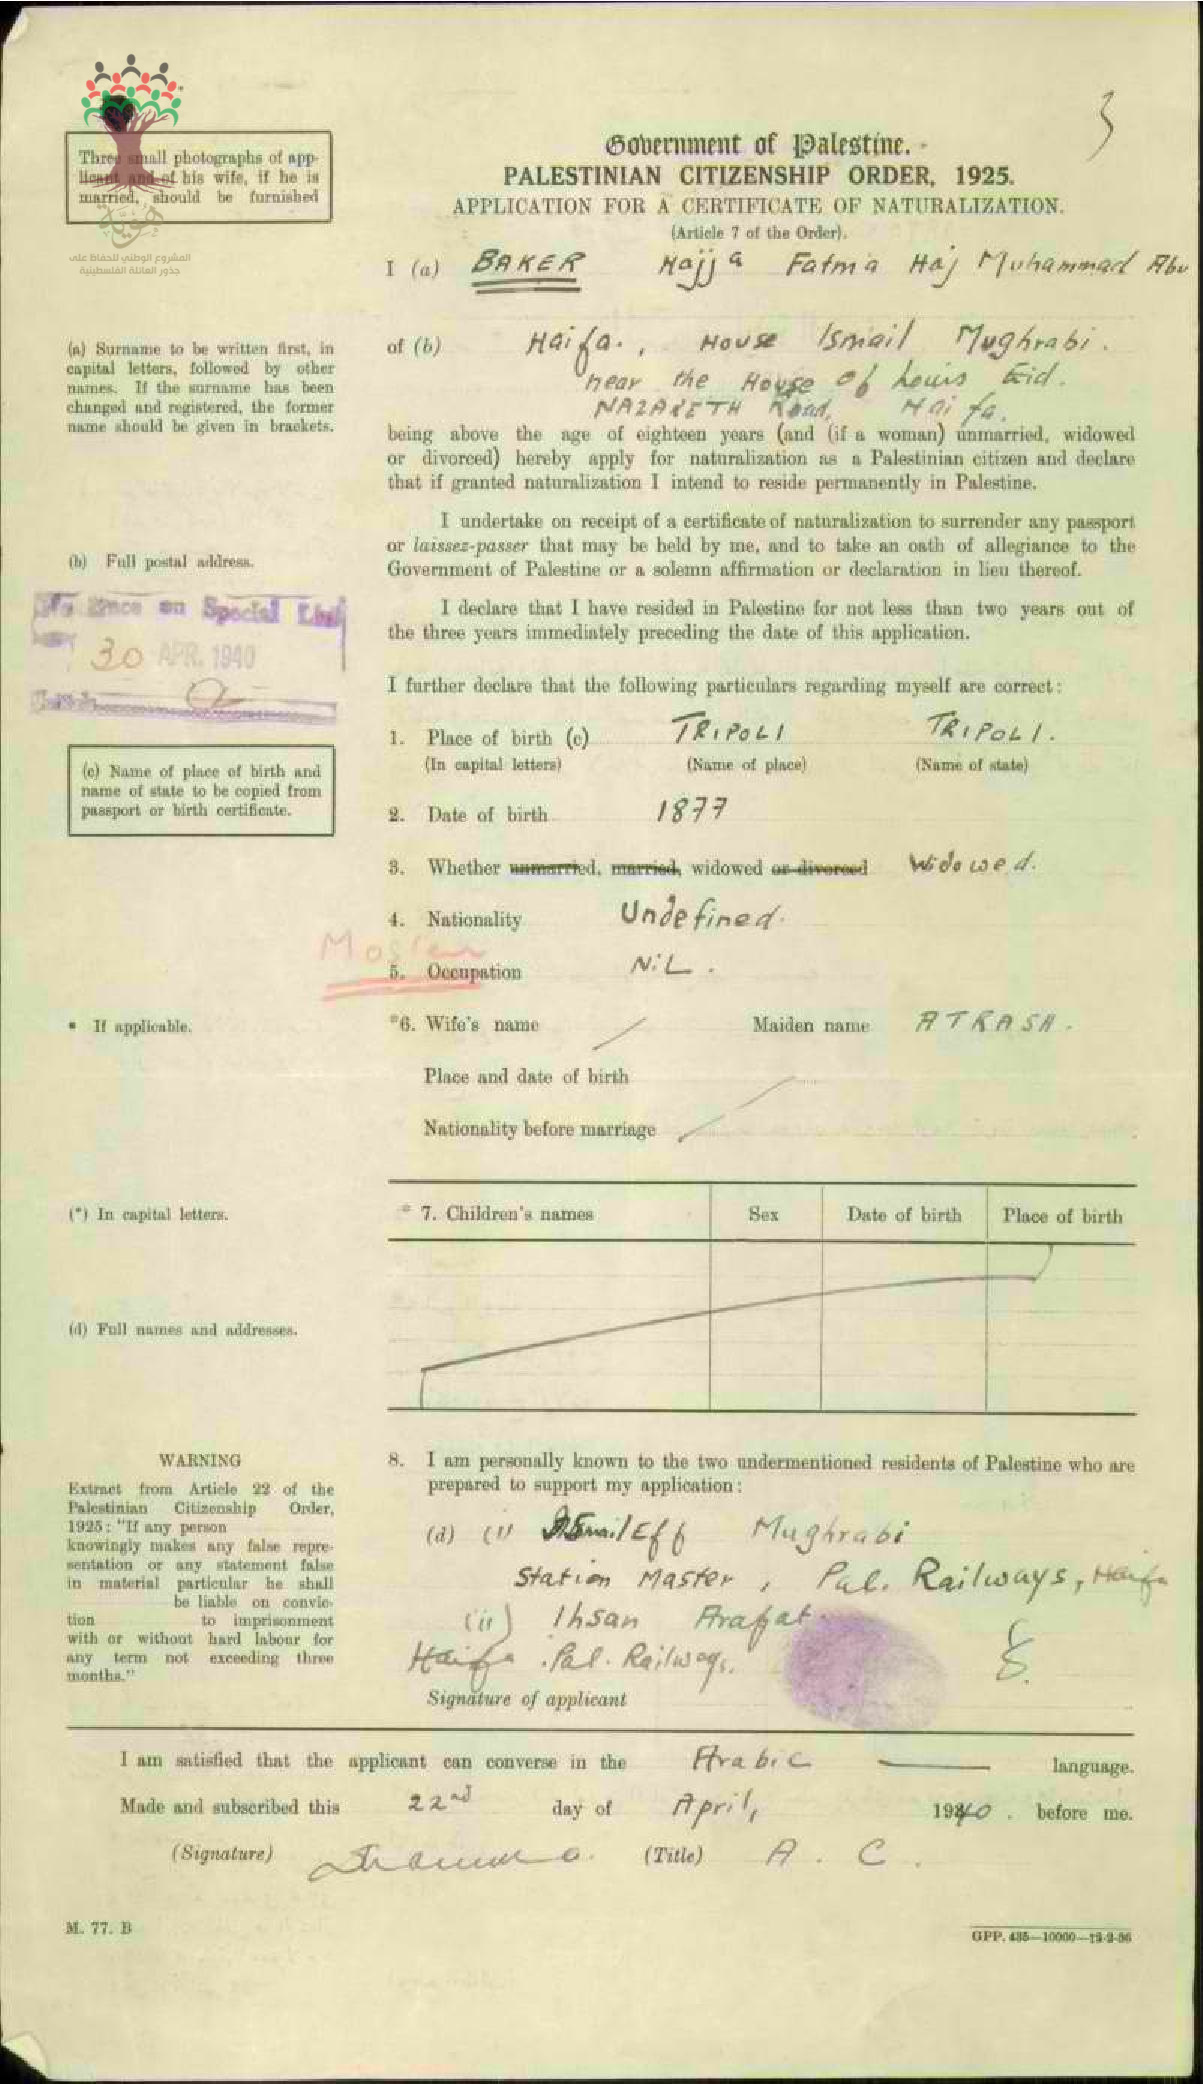 3
Three small photographs of app-
licant and of his wife, if he is
married, should be furnished
هوية
المشروع الوطني للحفاظ على
جذور العائلة الفلسطينية
Government of Palestine.
PALESTINIAN CITIZENSHIP ORDER, 1925.
APPLICATION FOR A CERTIFICATE OF NATURALIZATION.
(Article 7 of the Order).
I (a) BAKER Hajja Fatma Haj Muhammad Abu
(a) Surname to be written first, in
capital letters, followed by other
names. If the surname has been
changed and registered, the former
name should be given in brackets.
of (b) Haifa., House Ismail Mughrabi.
near the House of Eid.
NAZARETH Road, Haifa.
being above the age of eighteen years (and (if a woman) unmarried, widowed
or divorced) hereby apply for naturalization as a Palestinian citizen and declare
that if granted naturalization I intend to reside permanently in Palestine.
I undertake on receipt of a certificate of naturalization to surrender any passport
or laissez-passer that may be held by me, and to take an oath of allegiance to the
Government of Palestine or a solemn affirmation or declaration in lieu thereof.
(b) Full postal address.
on Special List
30 APR. 1940
I declare that I have resided in Palestine for not less than two years out of
the three years immediately preceding the date of this application.
I further declare that the following particulars regarding myself are correct:
1. Place of birth (c) TRIPOLI TRIPOLI.
(In capital letters) (Name of place) (Name of state)
(c) Name of place of birth and
name of state to be copied from
passport or birth certificate.
2. Date of birth 1877
3. Whether unmarried, married, widowed or divorced Widowed.
4. Nationality Undefined.
Moslem
5. Occupation NiL.
* If applicable.
*6. Wife's name Maiden name ATRASH.
Place and date of birth
Nationality before marriage
(*) In capital letters.
* 7. Children's names Sex Date of birth Place of birth
(d) Full names and addresses.
WARNING
Extract from Article 22 of the
Palestinian Citizenship Order,
1925: "If any person
knowingly makes any false repre-
sentation or any statement false
in material particular he shall
be liable on convic-
tion to imprisonment
with or without hard labour for
any term not exceeding three
months."
8. I am personally known to the two undermentioned residents of Palestine who are
prepared to support my application:
(d) (i) Ismail Eff Mughrabi
Station Master, Pal. Railways, Haifa
(ii) Ihsan Arafat
Haifa. Pal. Railways.
Signature of applicant
I am satisfied that the applicant can converse in the Arabic language.
Made and subscribed this 22nd day of April, 1940. before me.
(Signature) (Title) A. C.
M. 77. B
GPP. 435—10000—12-2-36